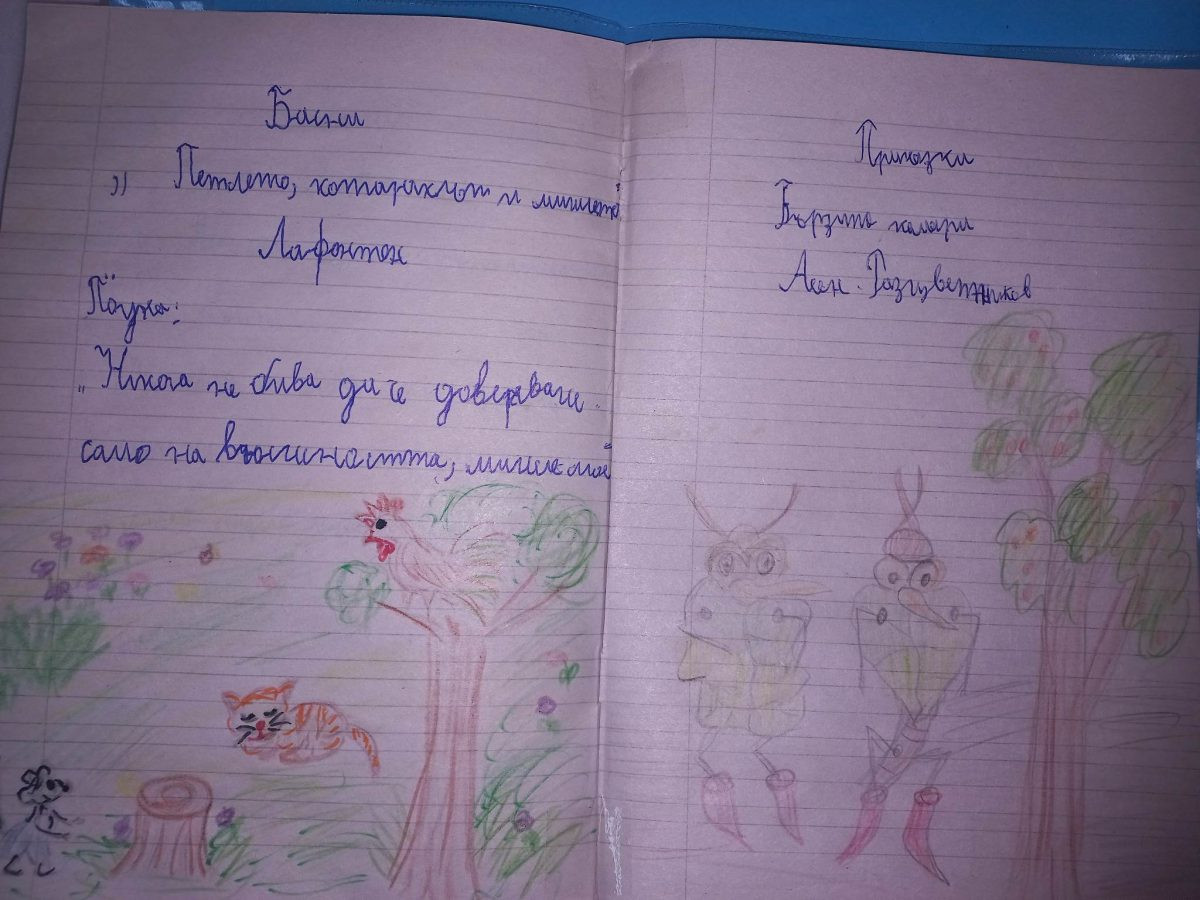 Басни
„ Петлето, котаракът и мишлето"
Лафонтен
Поука:
„Никога не бива да се доверяваш
само на външността, мишле мое"
Приказки
Бързите комари
Асен Разцветников